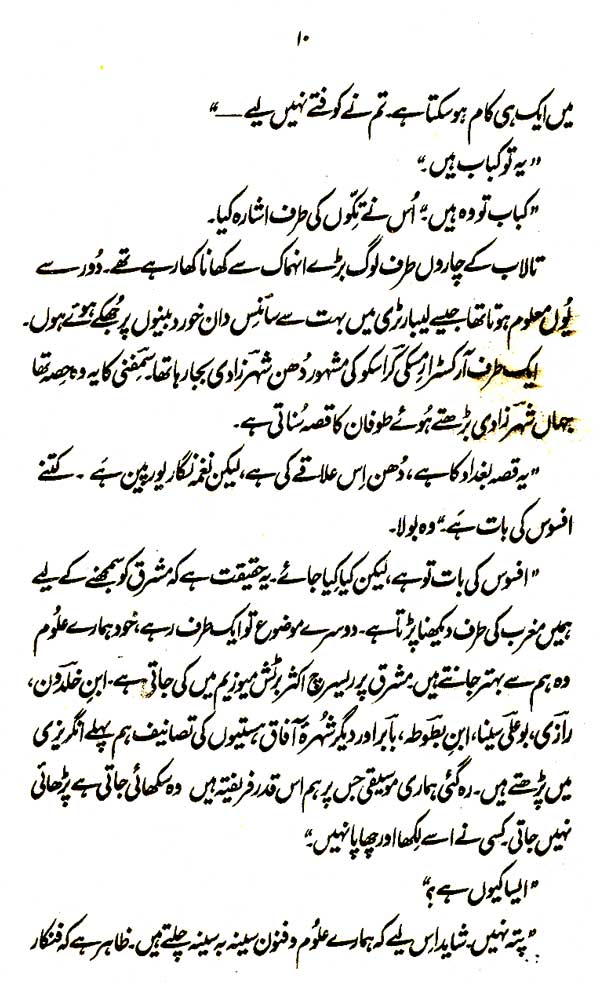 ۱۰
میں ایک ہی کام ہو سکتا ہے۔ تم نے کوفتے نہیں لیے —“
”یہ تو کباب ہیں۔“
”کباب تو وہ ہیں۔“ اُس نے تِکّوں کی طرف اشارہ کیا۔
تالاب کے چاروں طرف لوگ بڑے انہماک سے کھانا کھا رہے تھے۔ دُور سے
یُوں معلوم ہوتا تھا جیسے لیبارٹری میں بہت سے سائنس دان خوردبینوں پر جُھکے ہوئے ہوں۔
ایک طرف آرکسٹرا رمسکی کراسکو کی مشہور دُھن شہرزادی بجا رہا تھا۔ سمفنی کا یہ وہ حصہ تھا
جہاں شہرزادی بڑھتے ہُوئے طوفان کا قصہ سُناتی ہے۔
”یہ قصہ بغداد کا ہے، دُھن اِس علاقے کی ہے، لیکن نغمہ نگار یورپین ہے ۔ کتنے
افسوس کی بات ہے۔“ وہ بولا۔
”افسوس کی بات تو ہے، لیکن کیا کِیا جائے۔ یہ حقیقت ہے کہ مشرق کو سمجھنے کے لیے
ہمیں مغرب کی طرف دیکھنا پڑتا ہے۔ دوسرے موضوع تو ایک طرف رہے، خود ہمارے علُوم
وہ ہم سے بہتر جانتے ہیں۔ مشرق پر ریسرچ اکثر برٹش میوزیم میں کی جاتی ہے۔ ابنِ خلدون،
رازی، بوعلی سینا، ابنِ بطوطہ، بابر اور دیگر شہرۂ آفاق ہستیوں کی تصانیف ہم پہلے انگریزی
میں پڑھتے ہیں۔ رہ گئی ہماری موسیقی جس پر ہم اس قدر فریفتہ ہیں وہ سکھائی جاتی ہے پڑھائی
نہیں جاتی۔ کسی نے اسے لِکھا اور چھاپا نہیں۔“
”ایسا کیوں ہے؟“
”پتہ نہیں۔ شاید اِس لیے کہ ہمارے علُوم و فنون سینہ بہ سینہ چلتے ہیں۔ ظاہر ہے کہ فنکار